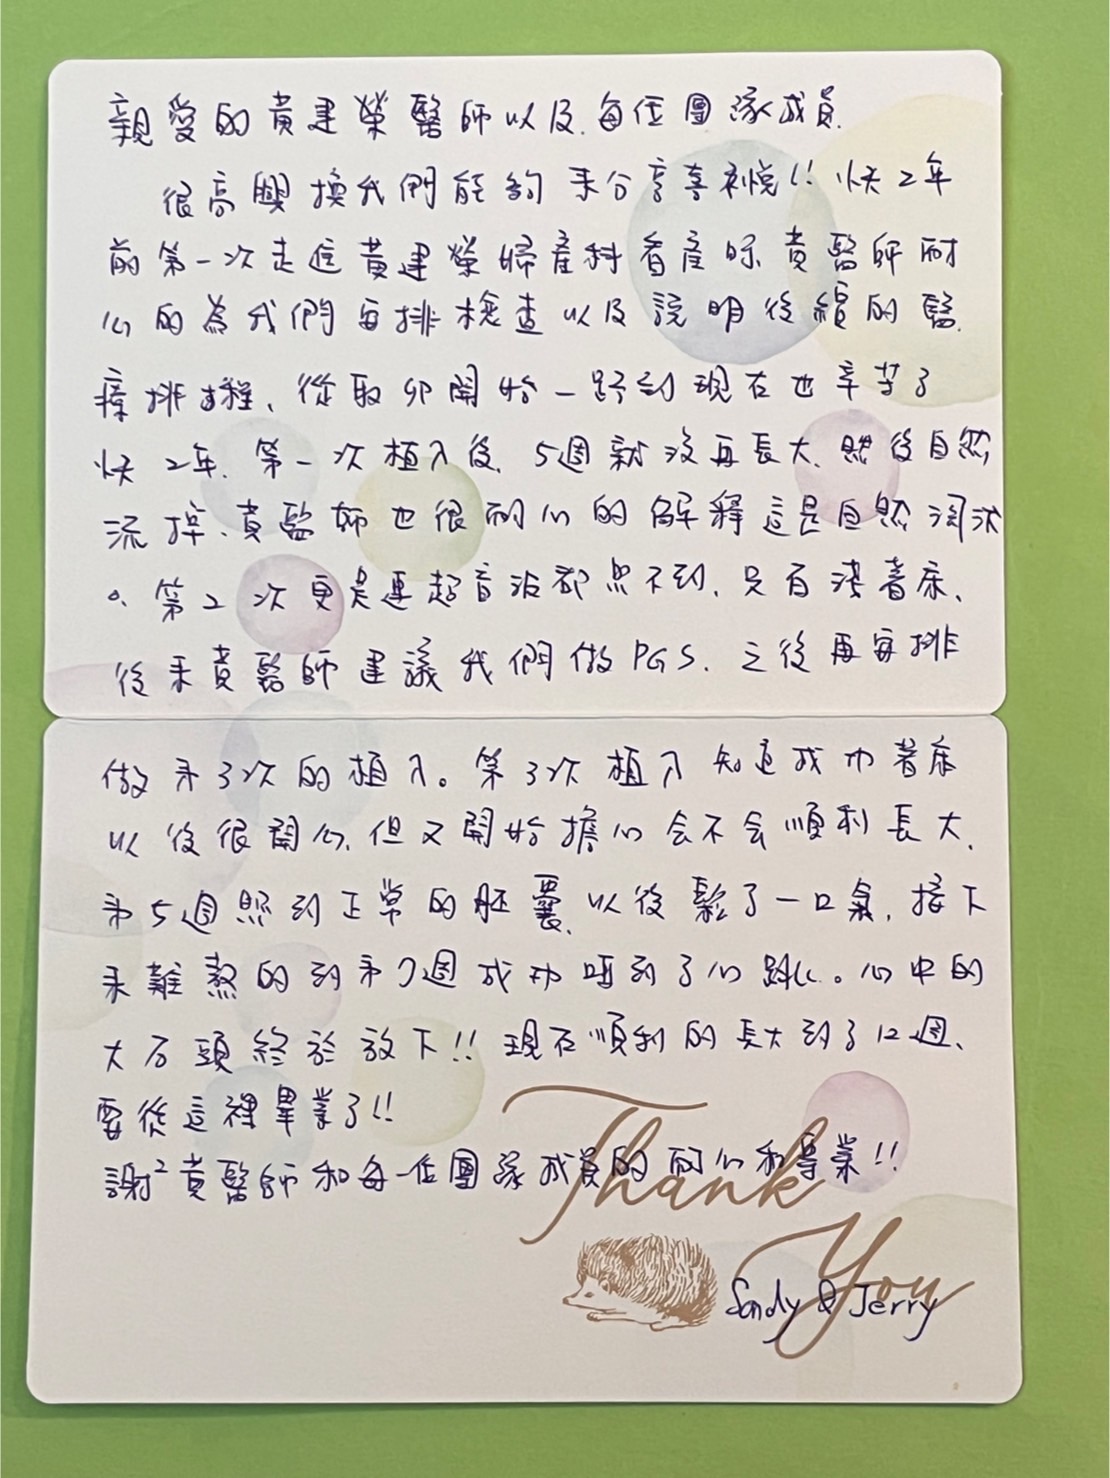 親愛的黃建榮醫師以及每位團隊成員.
很高興換我們能夠來分享喜悅!! 快2年
前第一次走進黃建榮婦產科看產 黃醫師耐
心的為我們安排檢查以及說明後續的醫
療排程、從取卵開始一路到現在也辛苦了
快2年. 第一次植入後, 5週就沒再長大、然後自然
流掉、黃醫師也很耐心的解釋這是自然淘汰
。第2次更是連超音波都照不到、只有淺著床、
後來黃醫師建議我們做PGS. 之後再安排
做第3次的植入。第3次植入知道成功著床
以後很開心, 但又開始擔心会不会順利長大.
第5週照到正常的胚囊, 以後鬆了一口氣, 接下
來難熬的到第7週成功 到了心跳。心中的
大石頭終於放下!! 現在順利的長大到了12週、
要從這裡畢業了!!
謝²黃醫師和每一位團隊成員的耐心和專業!!
Thank
You
Sandy & Jerry